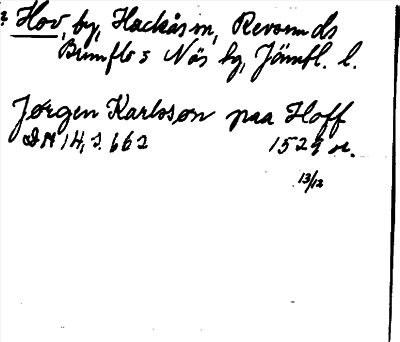 Hov, by, Hackås sn, Revsunds
Brunflo o Näs tg, Jämtl. l.
Jørgen Karlsson paa Hoff
DN 14, S. 662 1529 or.
13/12